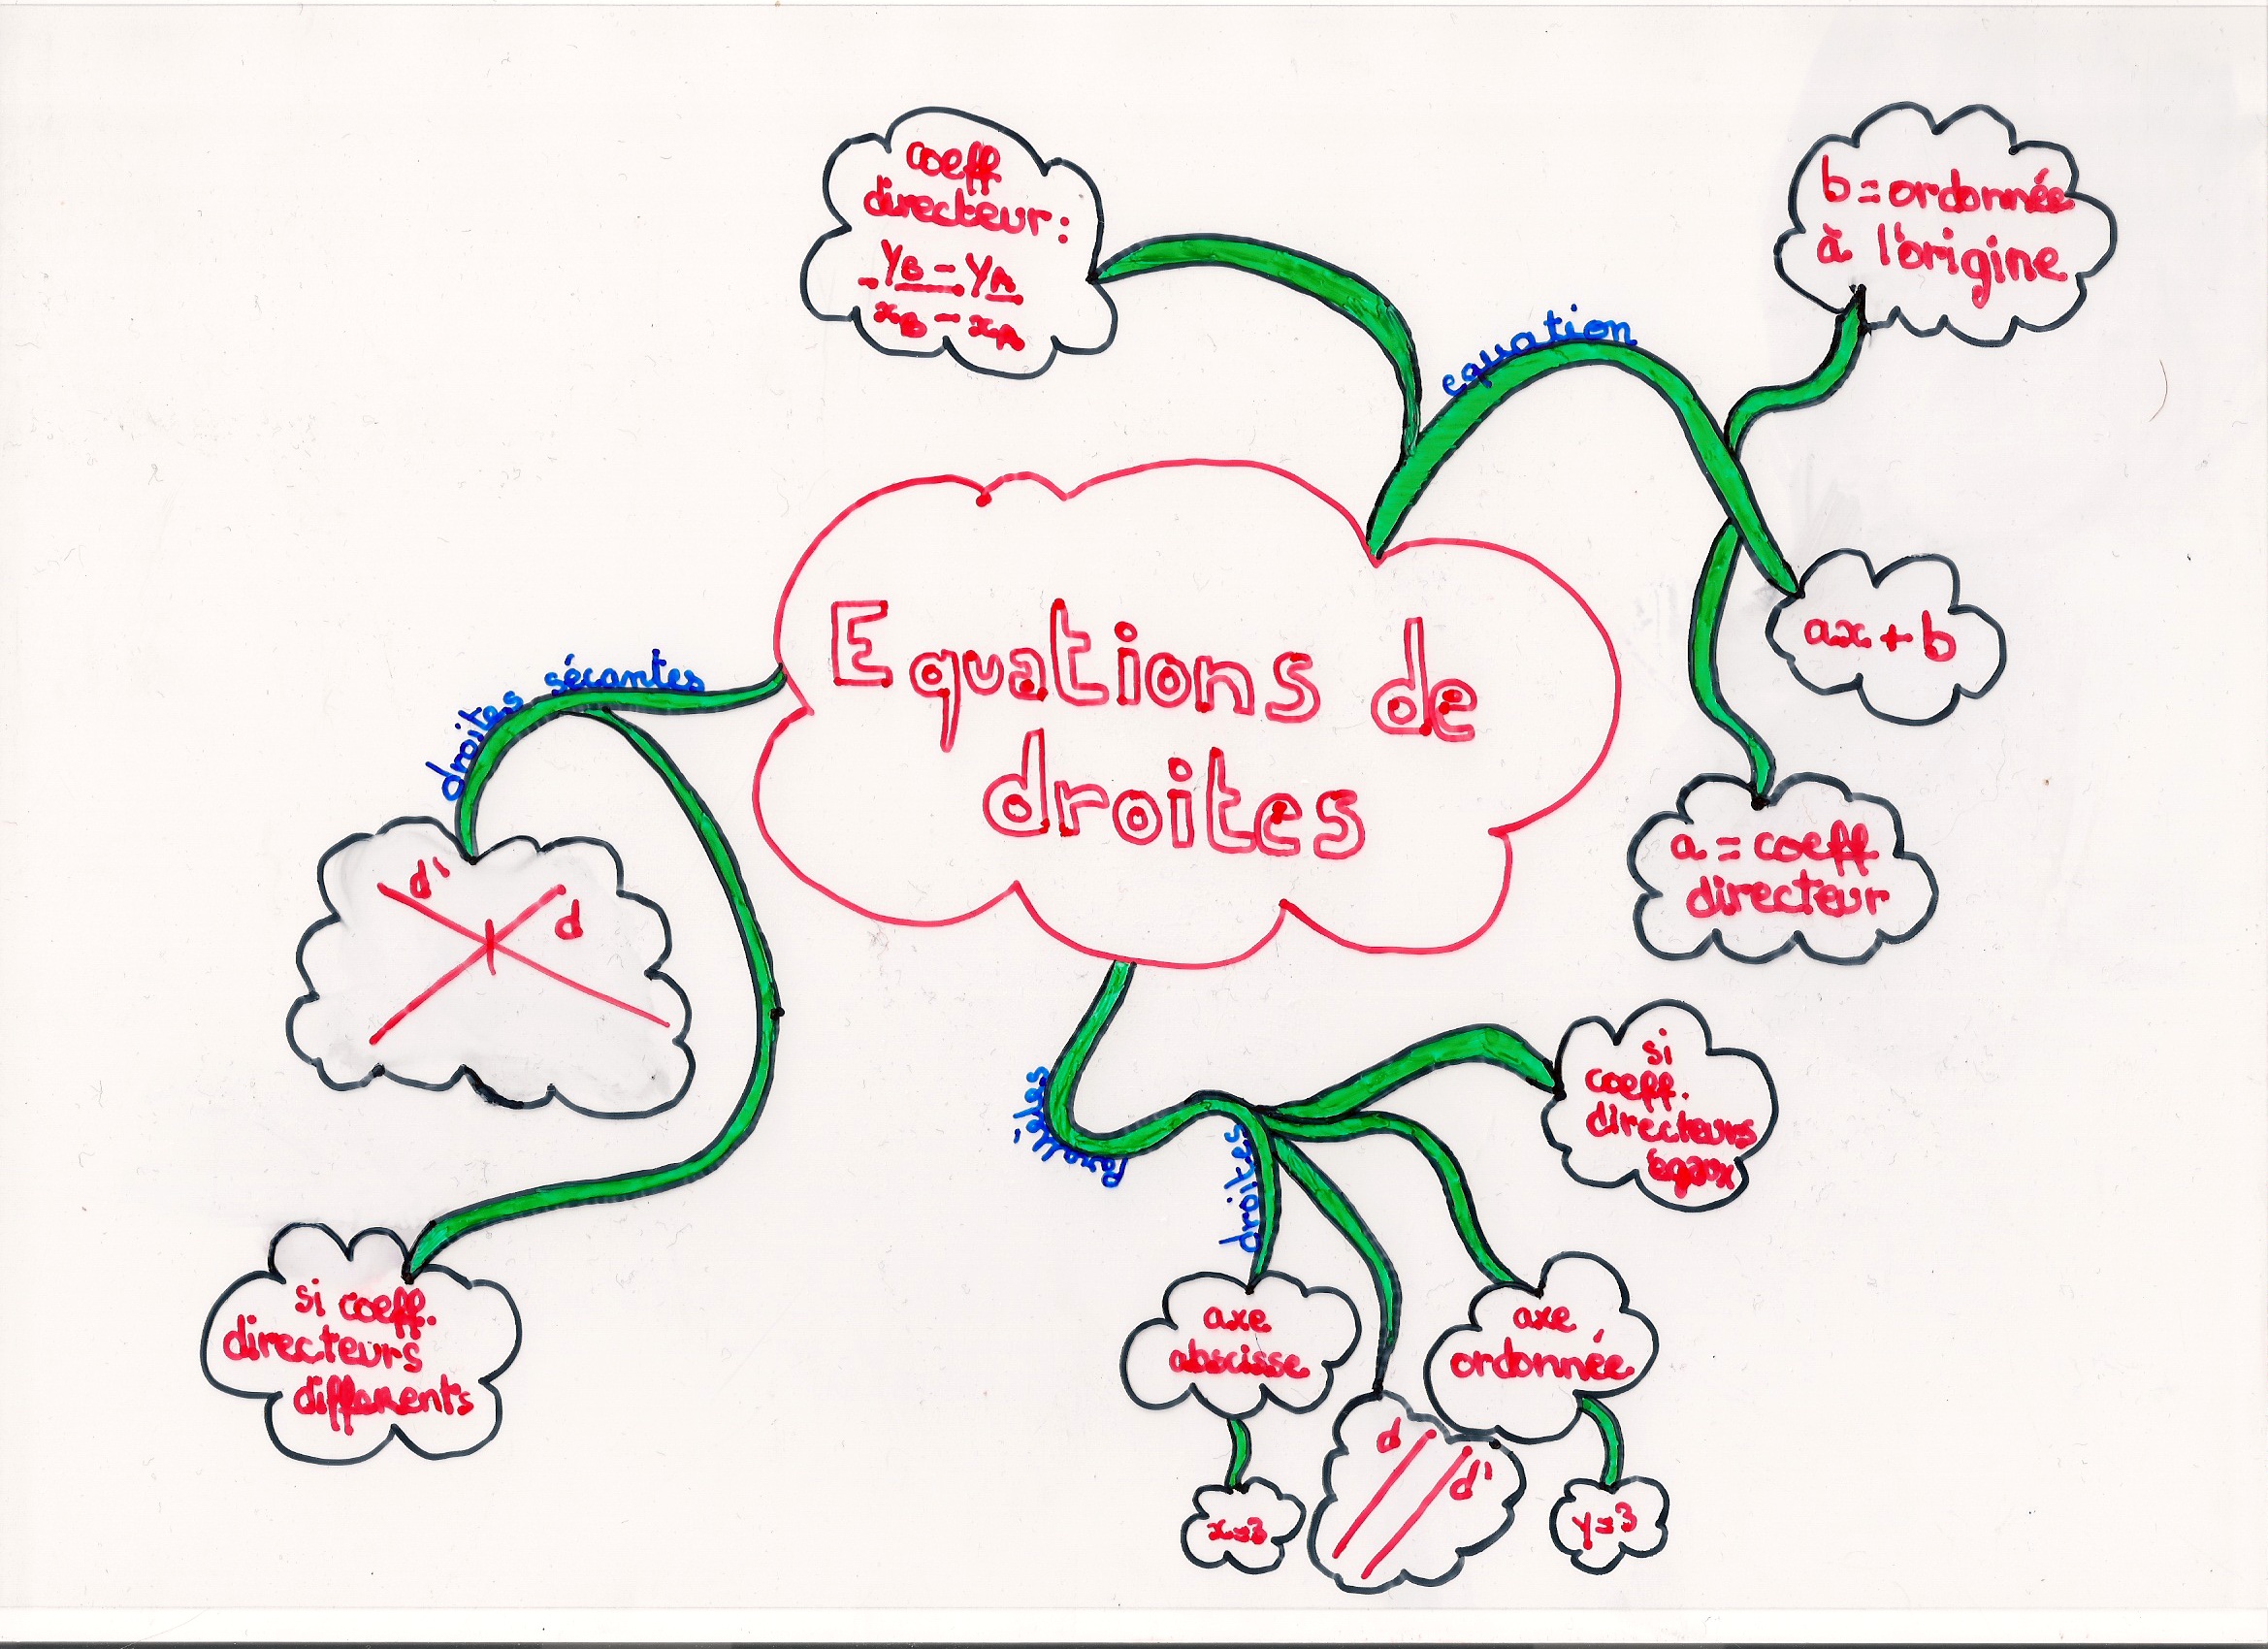 Equations de
droites
coeff
directeur:
yB - yA
xB - xA
equation
b = ordonnée
à l'origine
ax + b
a = coeff
directeur
droites sécantes
d'
d
si coeff.
directeurs
differents
droites
si
coeff.
directeurs
égaux
axe
abscisse
x=3
d
d'
axe
ordonnée
y=3